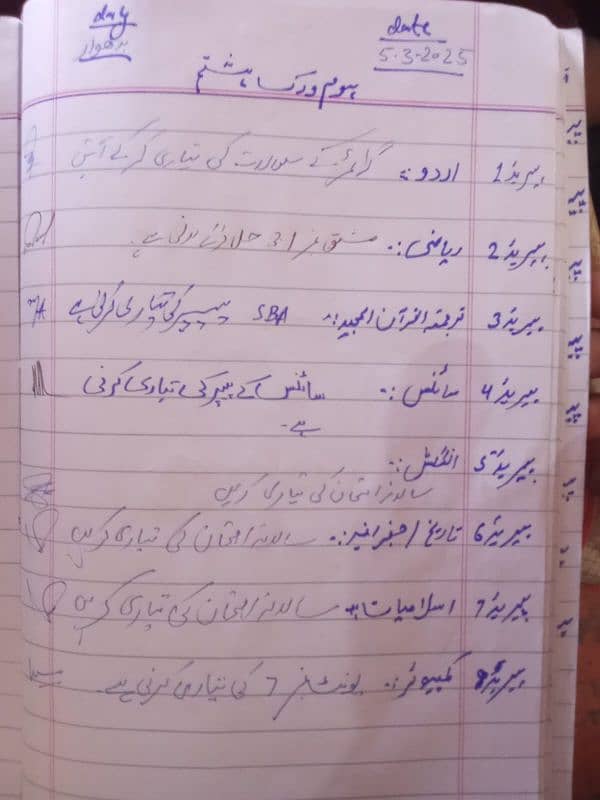 day
بدھوار
date
5-3-2025
ہوم ورک ہشتم
پیریڈ 1 اردو:۔ گرائمر کے سوالات کی تیاری کرکے آئیں
پیریڈ 2 ریاضی:۔ مشق نمبر 3 حل کرنی ہے۔
پیریڈ 3 ترجمۃ القرآن المجید:۔ SBA پیپر کی تیاری کرنی ہے
پیریڈ 4 سائنس:۔ سائنس کے پیپر کی تیاری کرنی
ہے۔
پیریڈ 5 انگلش:۔
سالانہ امتحان کی تیاری کریں
پیریڈ 6 تاریخ/جغرافیہ:۔ سالانہ امتحان کی تیاری کریں
پیریڈ 7 اسلامیات:۔ سالانہ امتحان کی تیاری کریں
پیریڈ 8 کمپیوٹر:۔ یونٹ نمبر 7 کی تیاری کرنی ہے۔